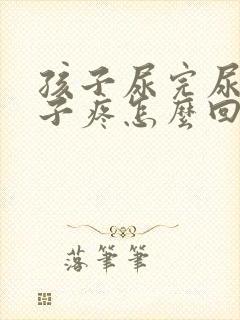 孩子尿完尿
子疼怎麼回
落筆筆